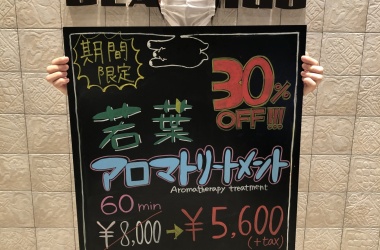 期間
限定
30%
OFF!!!
若葉
アロマトリートメント
Aromatherapy treatment
60 min
¥8,000→¥5,600
(+tax)